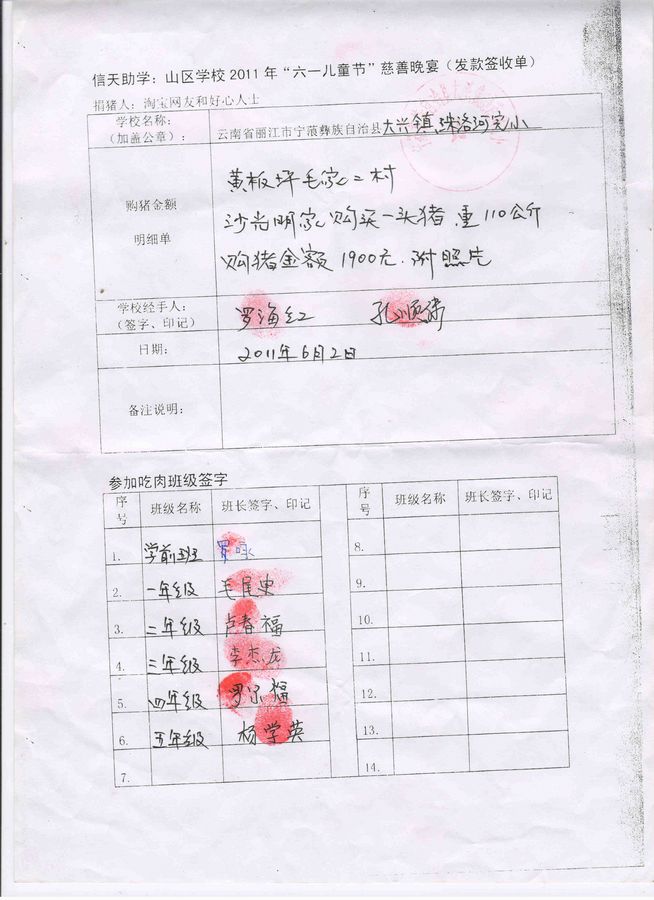 信天助学：山区学校 2011 年“六一儿童节”慈善晚宴（发款签收单）
捐猪人：淘宝网友和好心人士
学校名称：
（加盖公章）：
云南省丽江市宁蒗彝族自治县大兴镇珠洛河完小
购猪金额
明细单
黄板坪毛家二村
沙光明家购买一头猪，重110公斤
购猪金额1900元.附照片
学校经手人：
（签字、印记）
罗海红 孔顺涛
日期：
2011年6月2日
备注说明：
参加吃肉班级签字
序号 班级名称 班长签字、印记 序号 班级名称 班长签字、印记
1. 学前班 罗 8.
2. 一年级 毛尾史 9.
3. 二年级 卢春福 10.
4. 三年级 李杰龙 11.
5. 四年级 罗 福 12.
6. 五年级 杨学英 13.
7. 14.